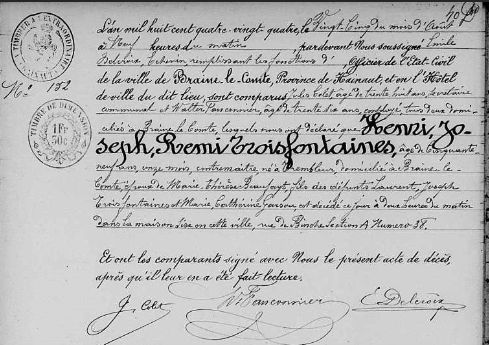 N° 152
TIMBRE À L'EXTRAORDINAIRE
TIMBRE DE DIMENSION
1 FR 50c
L'an mil huit cent quatre-vingt-quatre, le Vingt Cinq du mois d'Août
à Neuf heures du matin, pardevant Nous soussigné Emile
Delcroix, Echevin remplissant les fonctions d'Officier de l'Etat Civil
de la ville de Braine-le-Comte, Province de Hainaut, et en l'Hôtel
de ville du dit lieu, sont comparus Jules Colet, âgé de trente huit ans, Secrétaire
communal et Walter Parconnier, âgé de trente six ans, employé, tous deux domi-
ciliés à Braine le Comte, lesquels nous ont déclaré que Henri, Jo-
seph, Remi Troisfontaines, âgé de Cinquante
neuf ans, onze mois, contremaître, né à Trembleur domicilié à Braine-le-
Comte, époux de Marie Thérèse Beaufays, fils des défunts Laurent, Joseph
Troisfontaines et Marie Catherine Garsou est décédé ce jour à deux heures du matin
dans la maison sise en cette ville, rue de Binche Section A Numéro 38.
Et ont les comparants signé avec Nous le présent acte de décès,
après qu'il leur en a été fait lecture.
J. Colet
W. Parconnier
E. Delcroix